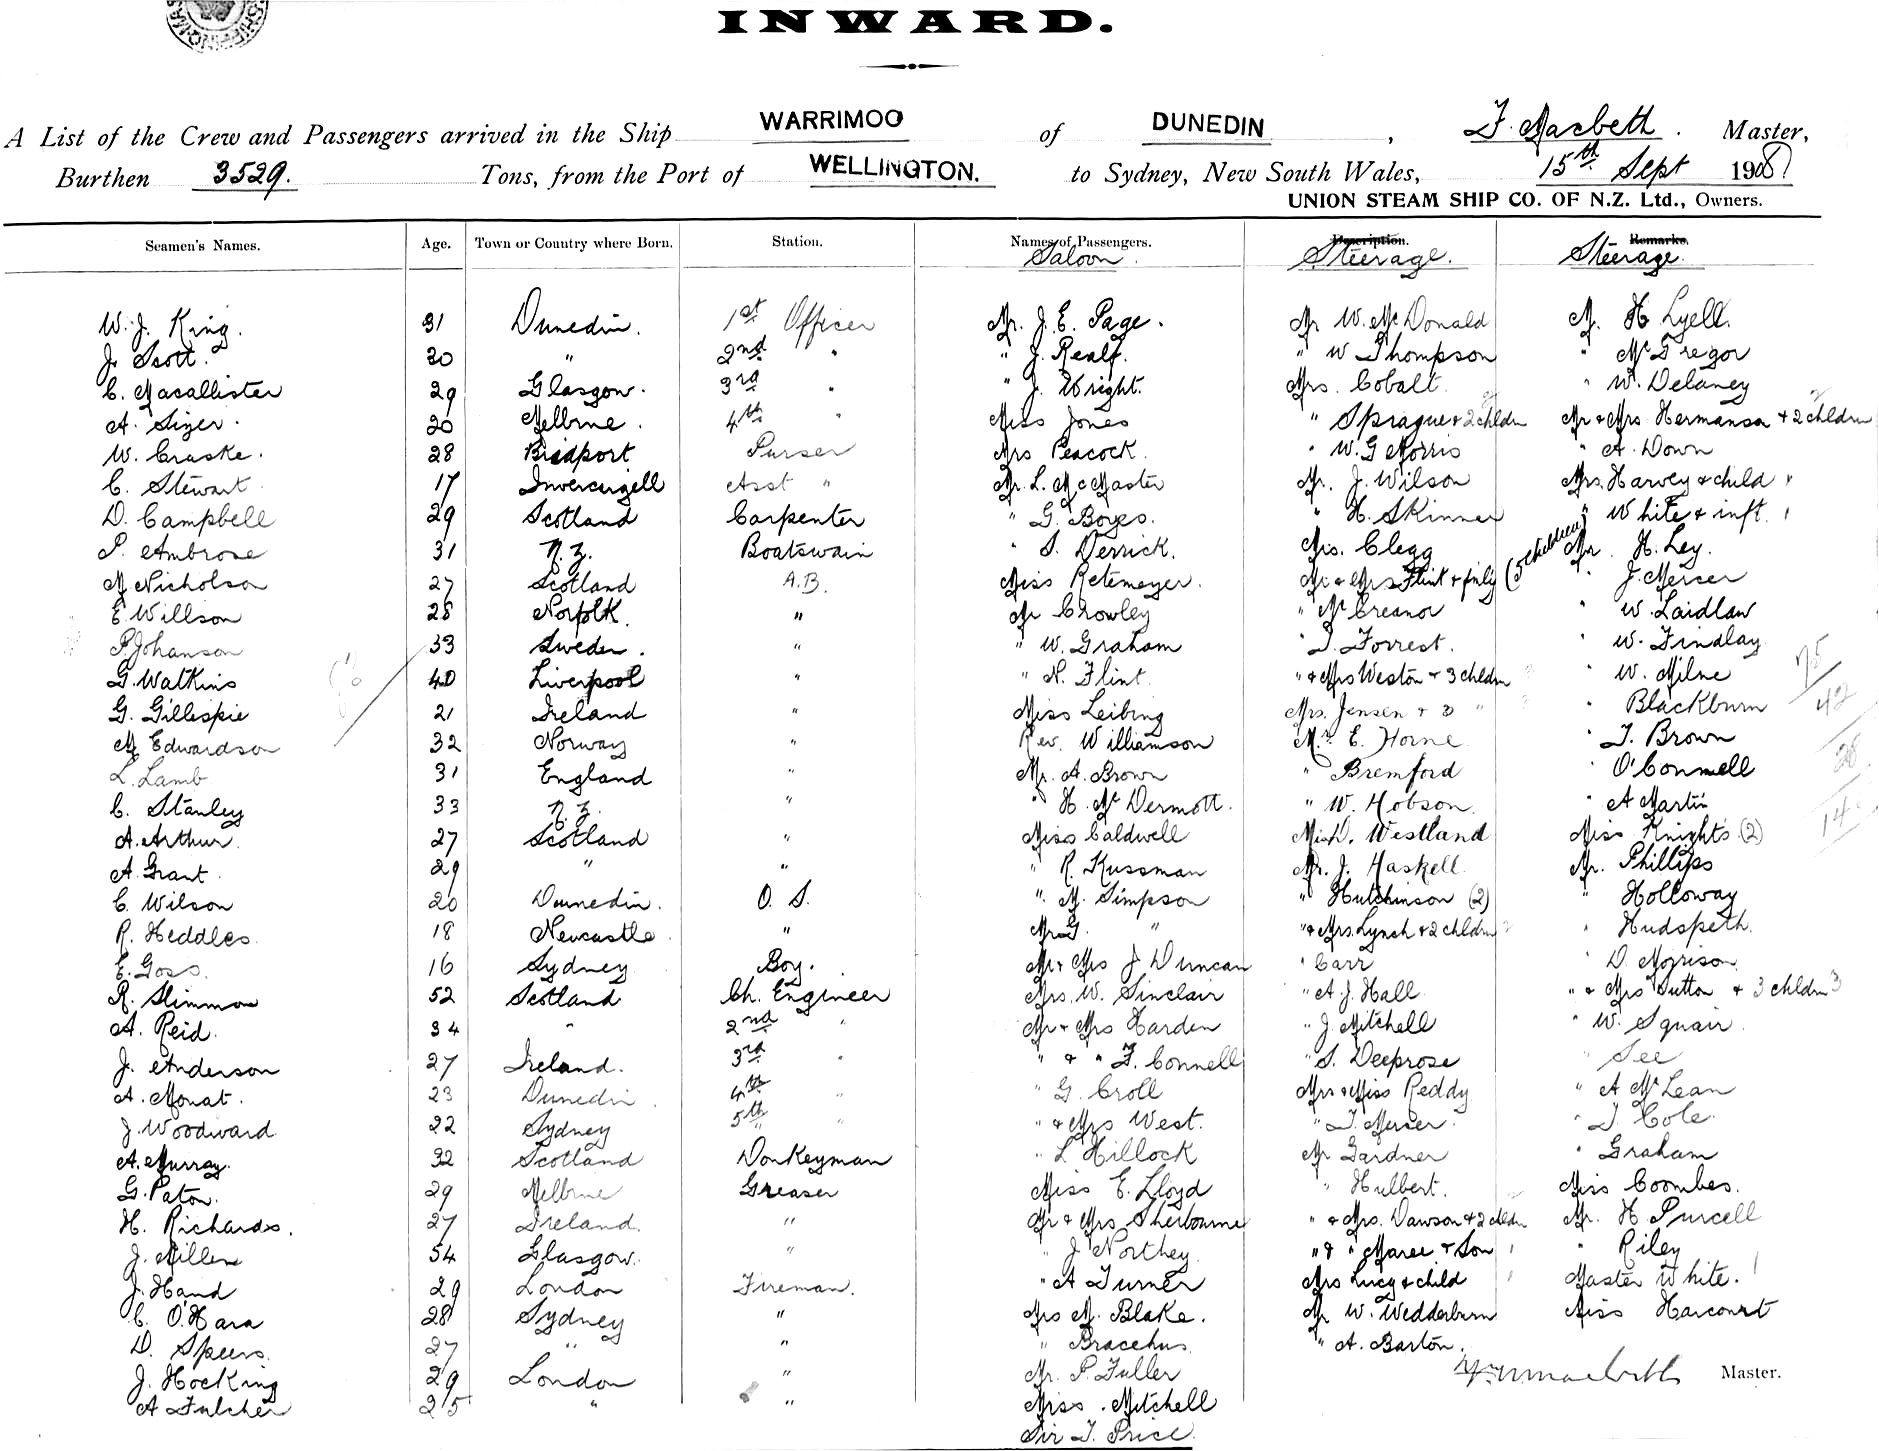 INWARD.
A List of the Crew and Passengers arrived in the Ship WARRIMOO of DUNEDIN, F. Macbeth. Master,
Burthen 3529. Tons, from the Port of WELLINGTON. to Sydney, New South Wales, 15th Sept 1908
UNION STEAM SHIP CO. OF N.Z. Ltd., Owners.
Seamen's Names. Age. Town or Country where Born. Station. Names of Passengers. Description. Remarks.
Saloon. Steerage. Steerage.
W. J. King. 31 Dunedin. 1st Officer Mr. J. E. Page. Mr W. McDonald Mr. H Lyell.
J. Scott. 30 " 2nd " " J. Realf. " W Thompson " McGregor
C. Macallister 29 Glasgow. 3rd " " J. Wright. Mrs. Cobalt. " W. Delaney
A. Sizer. 30 Melbrne. 4th " Miss Jones " Sprague & 2 chldn Mr & Mrs Hermansa & 2 chldrn
W. Craske. 28 Bridport Purser Mrs Peacock. " W. G Morris " A. Down
C. Stewart 17 Invercargell Asst " Mr. L. McMaster Mr. J. Wilson Mrs. Harvey & child "
D. Campbell 29 Scotland Carpenter " G. Boyes. " H. Skinner " White & inft.
P. Ambrose 31 N.Z. Boatswain " S. Derrick. Mrs. Clegg Mr. H. Ley.
M Nicholson 27 Scotland A.B. Miss Retemeyer. Mr & Mrs Flint & fmly (5 children) " J. Mercer
E. Willson 28 Norfolk " Mr Crowley " McCreanor " W. Laidlaw
P. Johanson 33 Sweden. " " W. Graham " T. Forrest. " W. Findlay
G. Watkins 40 Liverpool " " N. Flint. " & Mrs Weston & 3 chldrn " W. Milne
G. Gillespie 21 Ireland " Miss Leibing Mrs. Jensen & 3 " " Blackburn
M Edwardson 32 Norway " Rev. Williamson Mr. E. Horne " T. Brown
L. Lamb 31 England " Mr. A. Brown " Bremford " O'Connell
C. Stanley 33 N.Z. " " H. McDermott. " W. Hobson " A Martin
A. Arthur. 27 Scotland " Miss Caldwell Miss D. Westland Miss Knights (2)
A. Grant. 29 " " " R. Kussman Mr. J. Haskell. Mr. Phillips
C. Wilson 20 Dunedin. O. S. " M. Simpson " Hutchinson (2) " Holloway
R. Heddles. 18 Newcastle. " Mr G. " " & Mrs. Lynch & 2 chldrn " Hudspeth.
E. Goss. 16 Sydney Boy. Mr & Mrs J Duncan " Carr " D. Morrison
R. Slimmon 52 Scotland Ch. Engineer Mrs. W. Sinclair " A. J. Hall " & Mrs Sutton & 3 chldrn 3
A. Reid. 34 " 2nd " Mr & Mrs Harden " J. Mitchell " W. Squair.
J. Anderson 27 Ireland. 3rd " " & " F. Connell " S. Deeprose " See
A. Monat. 23 Dunedin. 4th " " G. Croll Mrs & Miss Reddy " A McLean
J. Woodward 22 Sydney 5th " " & Mrs West. " T. Mercer. " T. Cole.
A. Murray. 32 Scotland Donkeyman " L Hillock Mr Gardner " Graham
G. Paton. 29 Melbrne Greaser Miss E. Lloyd " Hulbert. Miss Coombes.
H. Richards. 27 Ireland. " Mr & Mrs Sherbourne " & Mrs. Dawson & 2 chldn Mr. H Purcell
J. Miller 54 Glasgow. " " J Northey " & " Maree & Son " Riley
J. Hand 29 London Fireman. " A Turner Mrs Lucy & child Master White.
C. O'Hara 28 Sydney " Mrs M. Blake. Mr W. Wedderburn Miss Harcourt
D. Speers. 27 " " " Bracehus " A. Barton.
J. Hocking 29 London " Mr. P. Fuller Master.
A Fulcher 25 " " Miss. Mitchell
Sir T. Price.
75
42
28
14